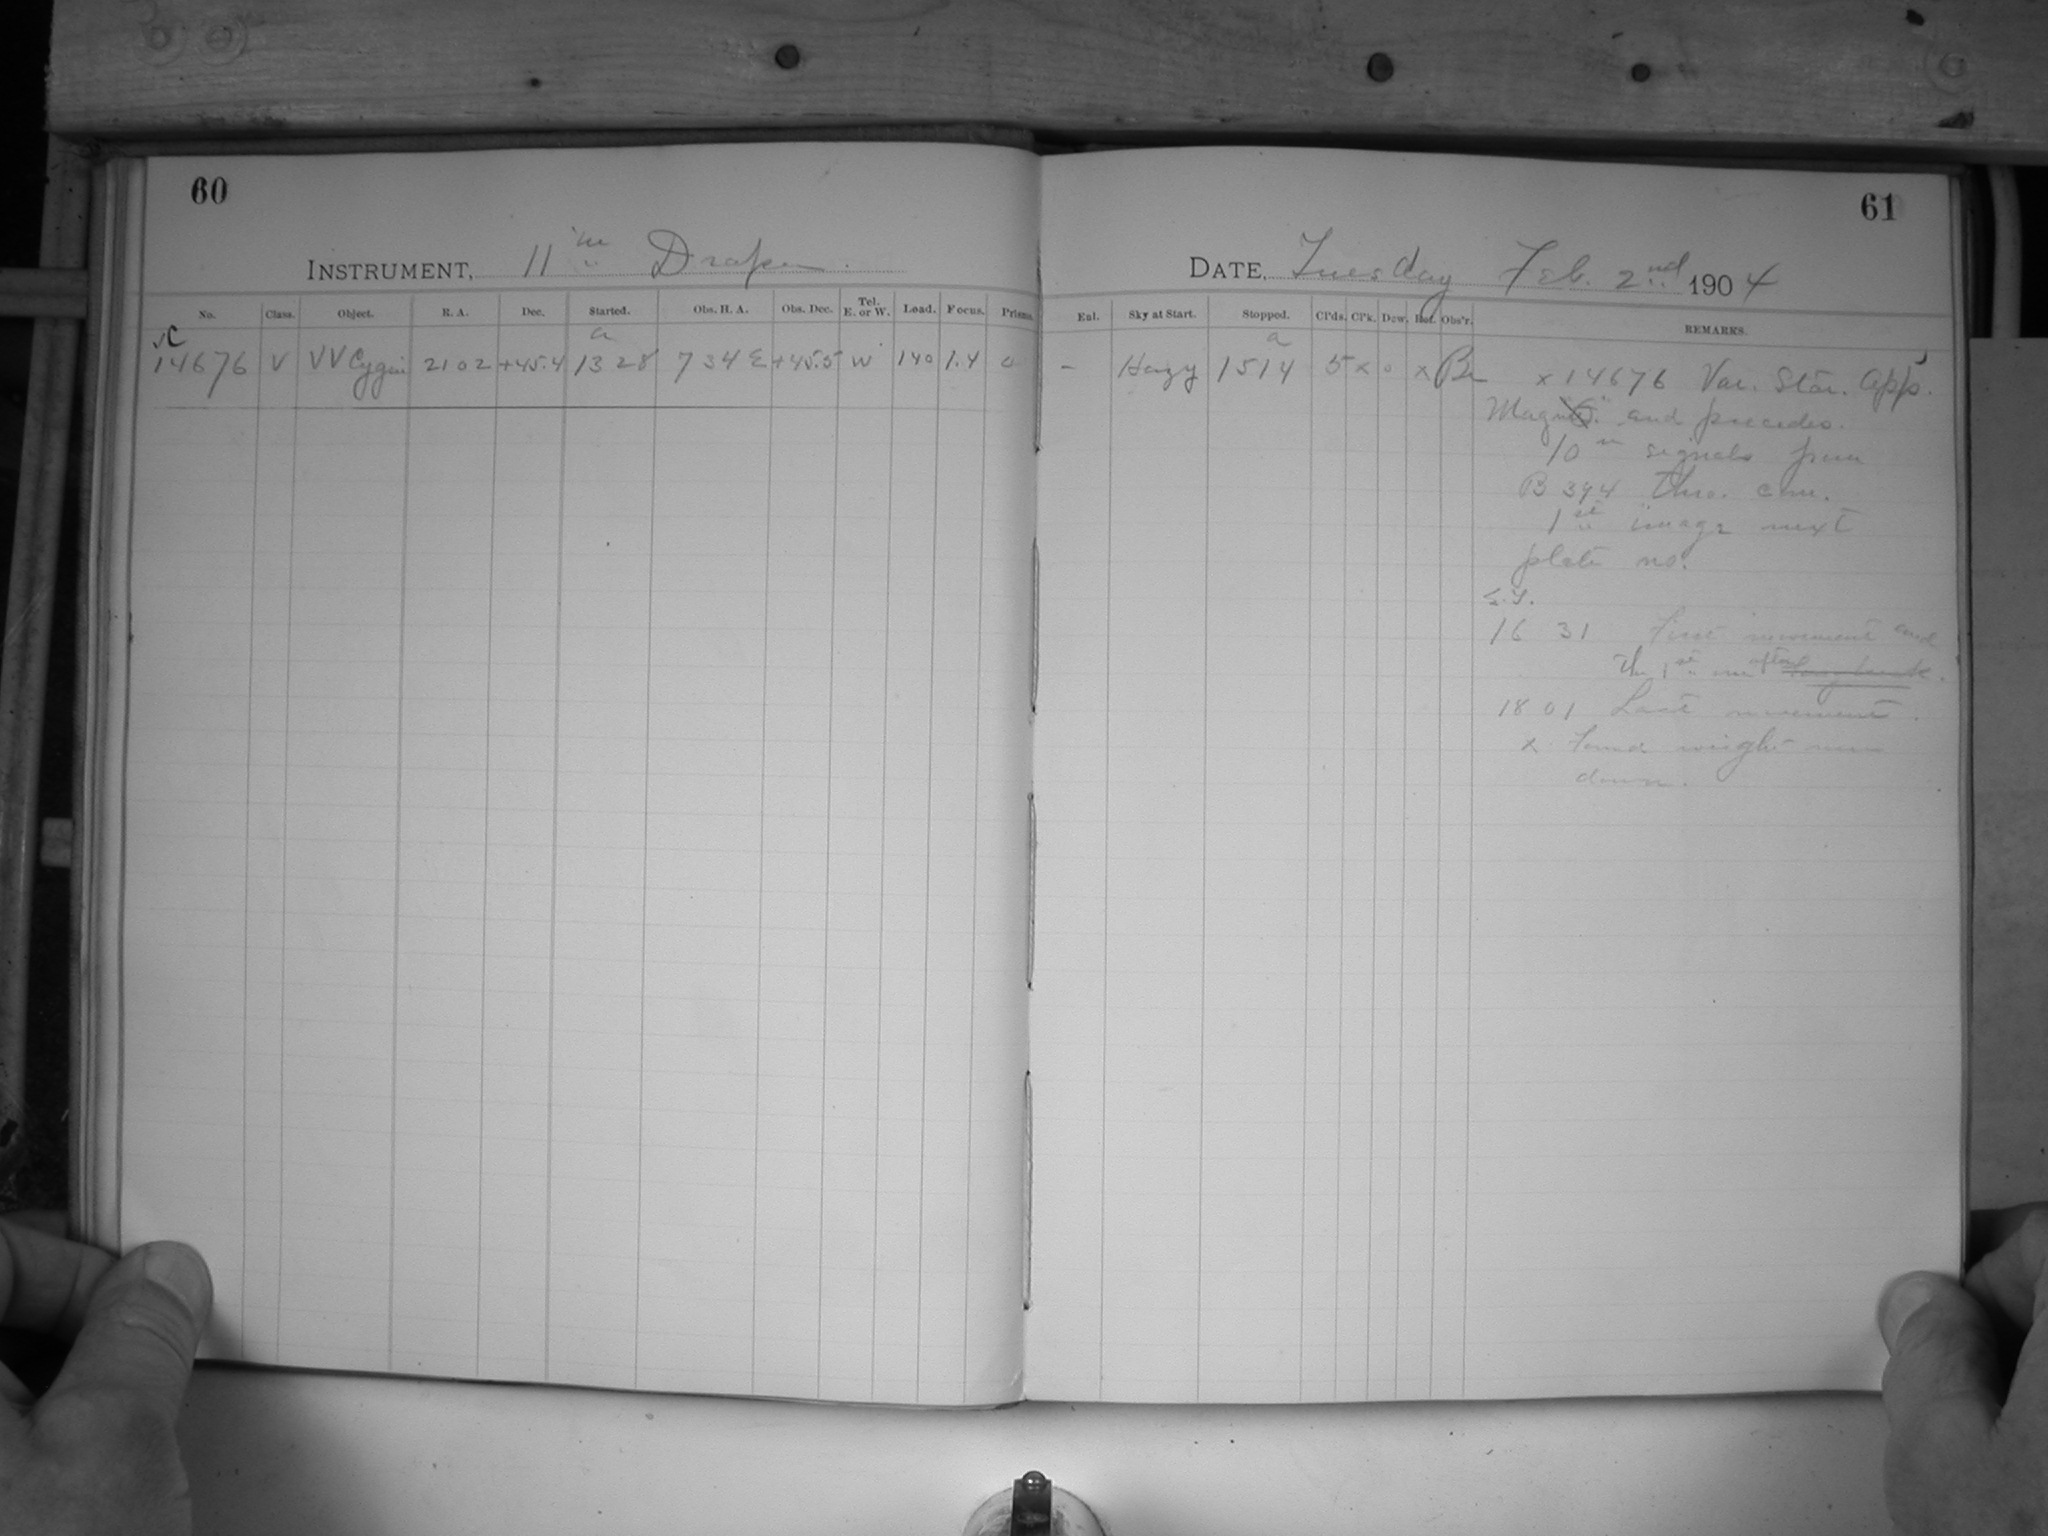 60
INSTRUMENT, 11 in Draper.
No. Class. Object. R. A. Dec. Started. Obs. H. A. Obs. Dec. Tel. E. or W. Load. Focus. Prisms.
C a
14676 V VV Cygni 21 02 +45.4 13 28 7 34 E +45.5 W 140 1.4 0
61
DATE, Tuesday Feb. 2nd 1904
Eal. Sky at Start. Stopped. Cl'ds. Cl'k. Dew. Rot. Obs'r. REMARKS.
a
- Hazy 1514 5 x 0 x x 14676 Var. Star. App.
and precedes.
10 m signals from
B 394 thro. com.
1st image next
plate no.
S.T.
16 31 First movement and
the 1st one after
18 01 Last movement.
x Found weight run
down.